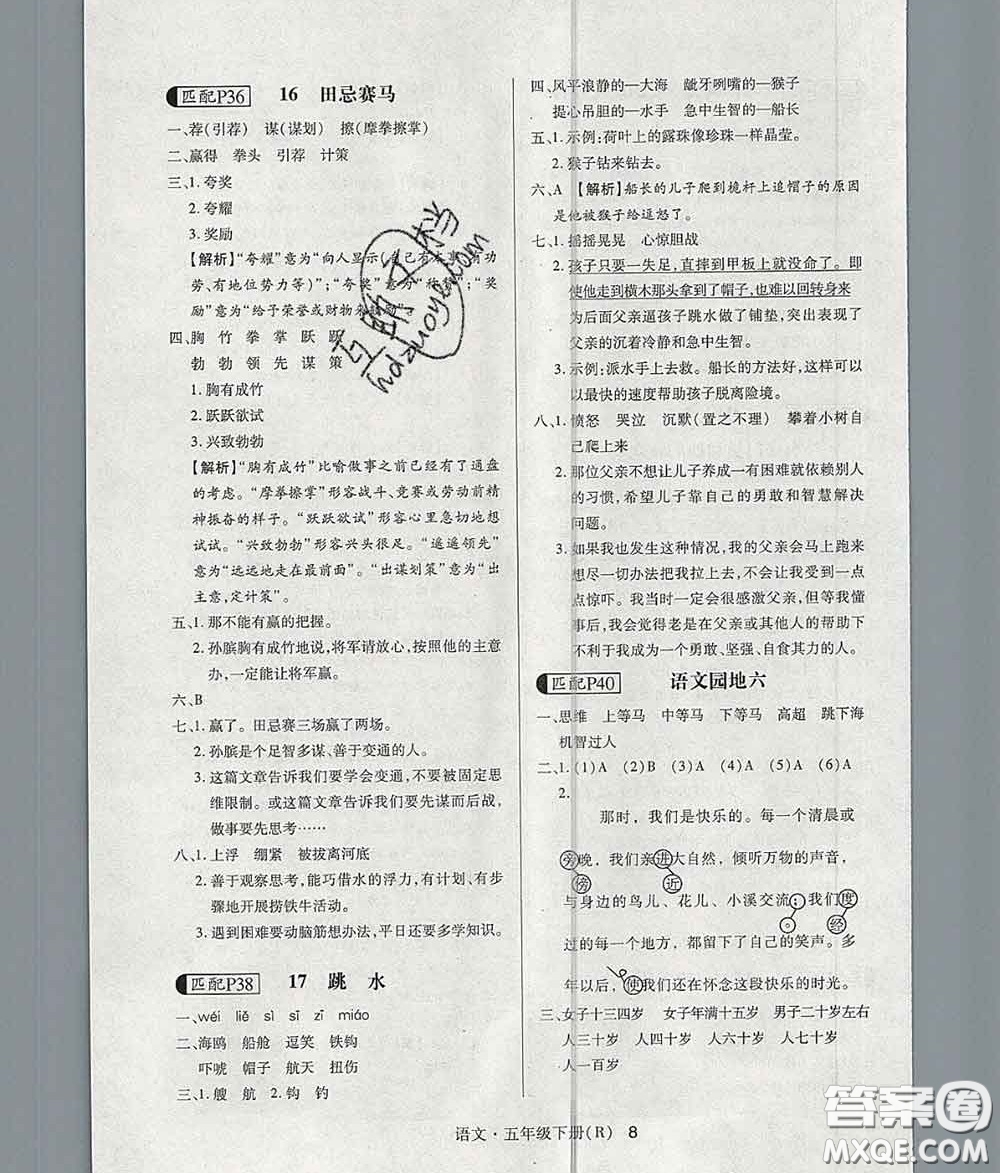 匹配P36 16 田忌赛马
一、荐(引荐) 谋(谋划) 擦(摩拳擦掌)
二、赢得 拳头 引荐 计策
三、1.夸奖
2.夸耀
3.奖励
【解析】“夸耀”意为“向人显示(自己有本事、有功
劳、有地位势力等)”;“夸奖”意为“称赞”;“奖
励”意为“给予荣誉或财物来鼓励”。
四、胸 竹 拳 掌 跃 跃
勃 勃 领 先 谋 策
1.胸有成竹
2.跃跃欲试
3.兴致勃勃
【解析】“胸有成竹”比喻做事之前已经有了通盘
的考虑。“摩拳擦掌”形容战斗、竞赛或劳动前精
神振奋的样子。“跃跃欲试”形容心里急切地想
试试。“兴致勃勃”形容兴头很足。“遥遥领先”
意为“远远地走在最前面”。“出谋划策”意为“出
主意,定计策”。
五、1.那不能有赢的把握。
2.孙膑胸有成竹地说,将军请放心,按照他的主意
办,一定能让将军赢。
六、B
七、1.赢了。田忌赛三场赢了两场。
2.孙膑是个足智多谋、善于变通的人。
3.这篇文章告诉我们要学会变通,不要被固定思
维限制。或这篇文章告诉我们要先谋而后战,
做事要先思考……
八、1.上浮 绷紧 被拔离河底
2.善于观察思考,能巧借水的浮力,有计划、有步
骤地开展捞铁牛活动。
3.遇到困难要动脑筋想办法,平日还要多学知识。
匹配P38 17 跳 水
一、wéi liě sì sī zī miáo
二、海鸥 船舱 逗笑 铁钩
吓唬 帽子 航天 扭伤
三、1.艘 航 2.钩 钓
四、风平浪静的—大海 龇牙咧嘴的—猴子
提心吊胆的—水手 急中生智的—船长
五、1.示例:荷叶上的露珠像珍珠一样晶莹。
2.猴子钻来钻去。
六、A 【解析】船长的儿子爬到桅杆上追帽子的原因
是他被猴子给逗怒了。
七、1.摇摇晃晃 心惊胆战
2.孩子只要一失足,直摔到甲板上就没命了。即
使他走到横木那头拿到了帽子,也难以回转身来
为后面父亲逼孩子跳水做了铺垫,突出表现了
父亲的沉着冷静和急中生智。
3.示例:派水手上去救。船长的方法好,这样可
以以最快的速度帮助孩子脱离险境。
八、1.愤怒 哭泣 沉默(置之不理) 攀着小树自
己爬上来
2.那位父亲不想让儿子养成一有困难就依赖别人
的习惯,希望儿子靠自己的勇敢和智慧解决
问题。
3.如果我也发生这种情况,我的父亲会马上跑来
想尽一切办法把我拉上去,不会让我受到一点
点惊吓。我当时一定会很感激父亲,但等我懂
事后,我会觉得老是在父亲或其他人的帮助下
不利于我成为一个勇敢、坚强、自食其力的人。
匹配P40 语文园地六
一、思维 上等马 中等马 下等马 高超 跳下海
机智过人
二、1.(1)A (2)B (3)A (4)A (5)A (6)A
2.
那时,我们是快乐的。每一个清晨或
旁晚,我们亲进大自然,倾听万物的声音,
傍 近
与身边的鸟儿、花儿、小溪交流;我们度
。 经
过的每一个地方,都留下了自己的笑声。多
年以后,使我们还在怀念这段快乐的时光。
三、女子十三四岁 女子年满十五岁 男子二十岁左右
人三十岁 人四十岁 人六十岁 人七十岁
人一百岁
语文·五年级下册(R) 8
答案圈
MXQE.COM